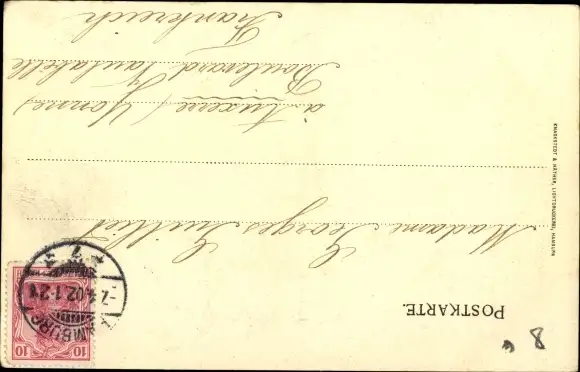 8
POSTKARTE.
10 10
HAMBURG
-7.4.02.1-2N
* 1 *
Madame Georges Guillet
à Auxerre (Yonne)
Boulevard Vaulabelle
Frankreich
KNACKSTEDT & NÄTHER, LICHTDRUCKEREI, HAMBURG